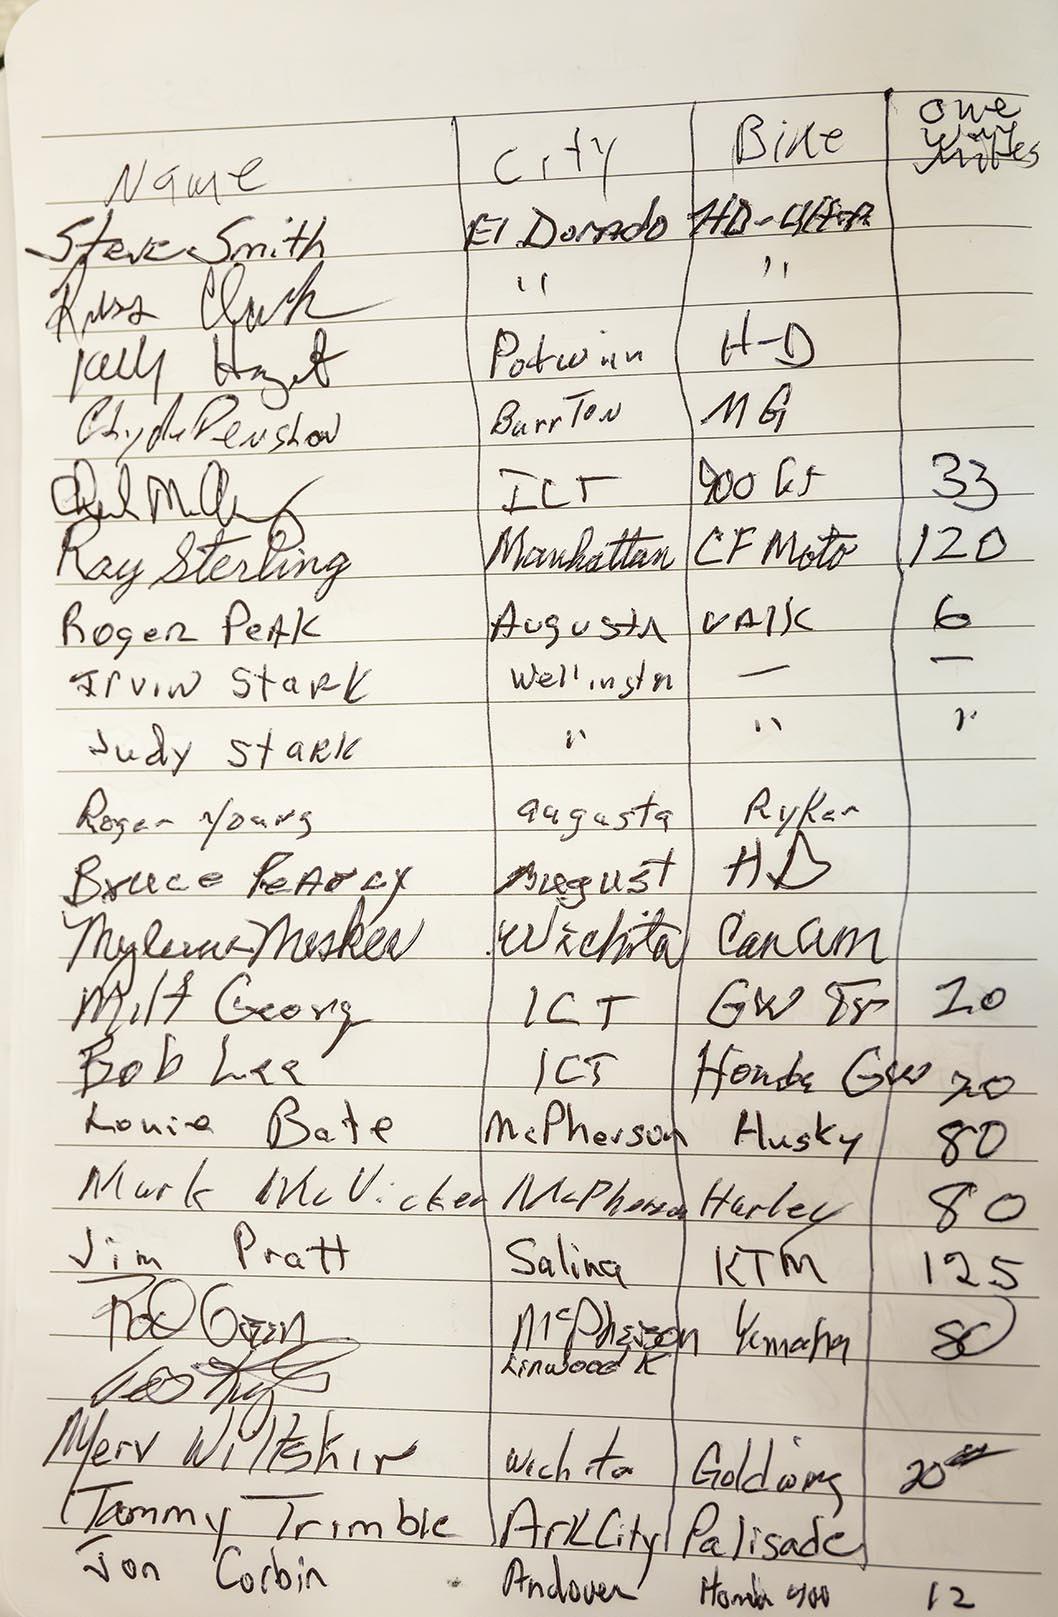 Name City Bike one way miles
Steve Smith El Dorado HD-Ultra
Russ Clark " "
Kelly Potwin H-D
Clyde Penshow Burrton MG
ICT 900 33
Ray Sterling Manhattan CF Moto 120
Roger Peak Augusta VAlk 6
Irvin Stark Wellingtn — —
Judy Stark " " "
Roger Young augusta Ryker
Bruce August HD
Wichita CanAm
Milt Georg ICT GW 20
Bob Lee ICT Honda GW 20
Louie Bate McPherson Husky 80
Mark McVicker McPherson Harley 80
Jim Pratt Salina KTM 125
Rod Green McPherson Yamaha 80
Linwood K
Merv Wiltshir Wichita Goldwing 20
Tammy Trimble Ark City Palisade
Jon Corbin Andover Honda 12